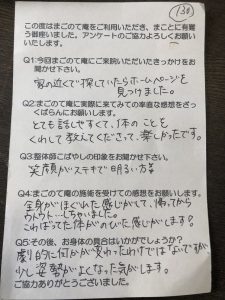 138
この度はまごのて庵をご利用いただき、まことに有難
う御座いました。アンケートのご協力よろしくお願い
いたします。
Q1:今回まごのて庵にご来院いただいたきっかけをお
聞かせ下さい。
家の近くで探していたらホームページを
見つけました。
Q2:まごのて庵に実際に来てみての率直な感想をざっ
くばらんにお願いします。
とても話しやすくて、体のことを
くわしく教えてくださって、楽しかったです。
Q3:整体師こばやしの印象をお聞かせ下さい。
笑顔がステキで明るい方
Q4:まごのて庵の施術を受けての感想をお願いします。
全身がほぐれた感じがして、帰ってから
ウトウト…しちゃいました。
こわばってた体がのびた感じがします?
Q5:その後、お身体の具合はいかがでしょうか?
劇的に何かが変わったわけではないですが
少し姿勢がよくなった気がします。
ご協力ありがとうございました。